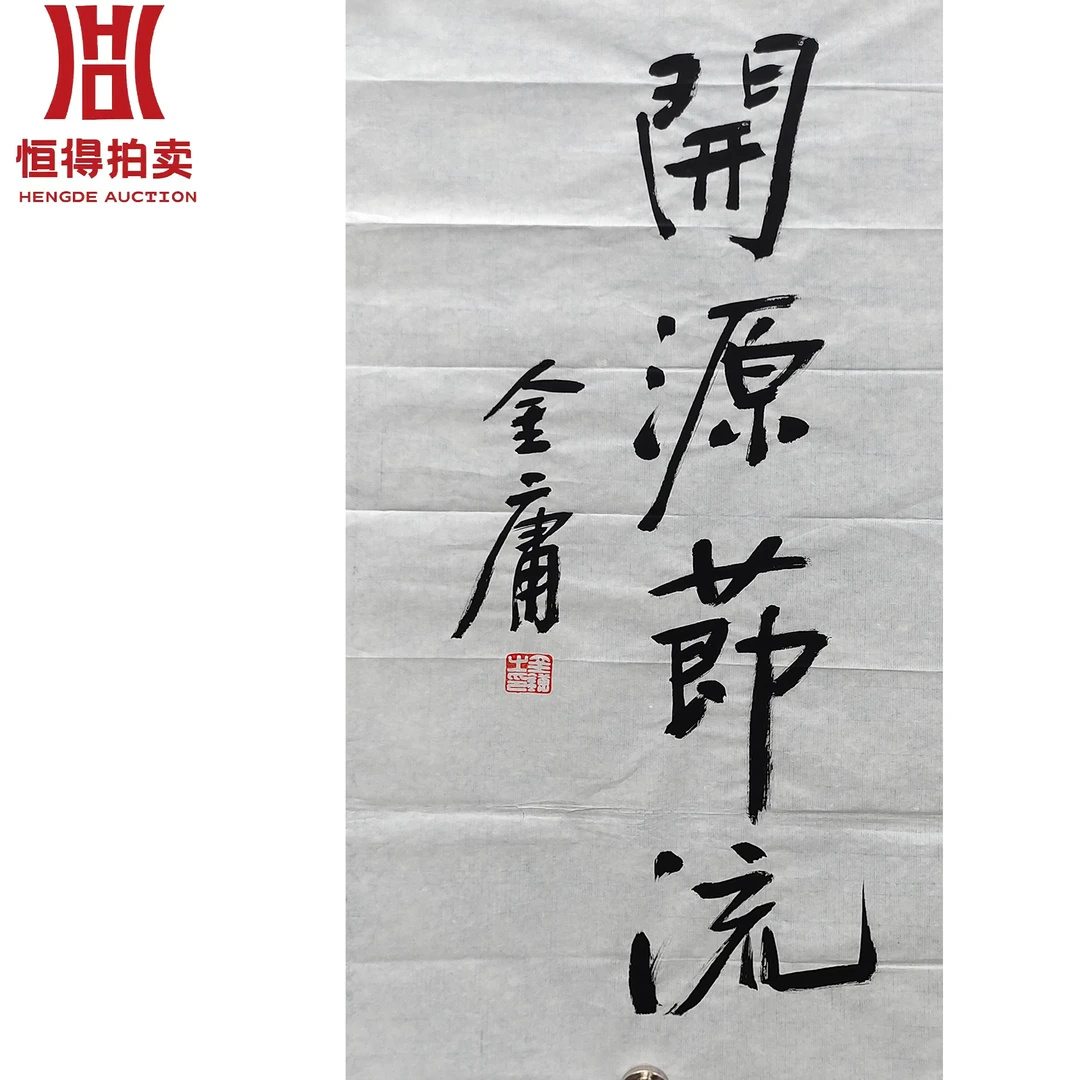 恒得拍卖
HENGDE AUCTION
開源節流
金庸